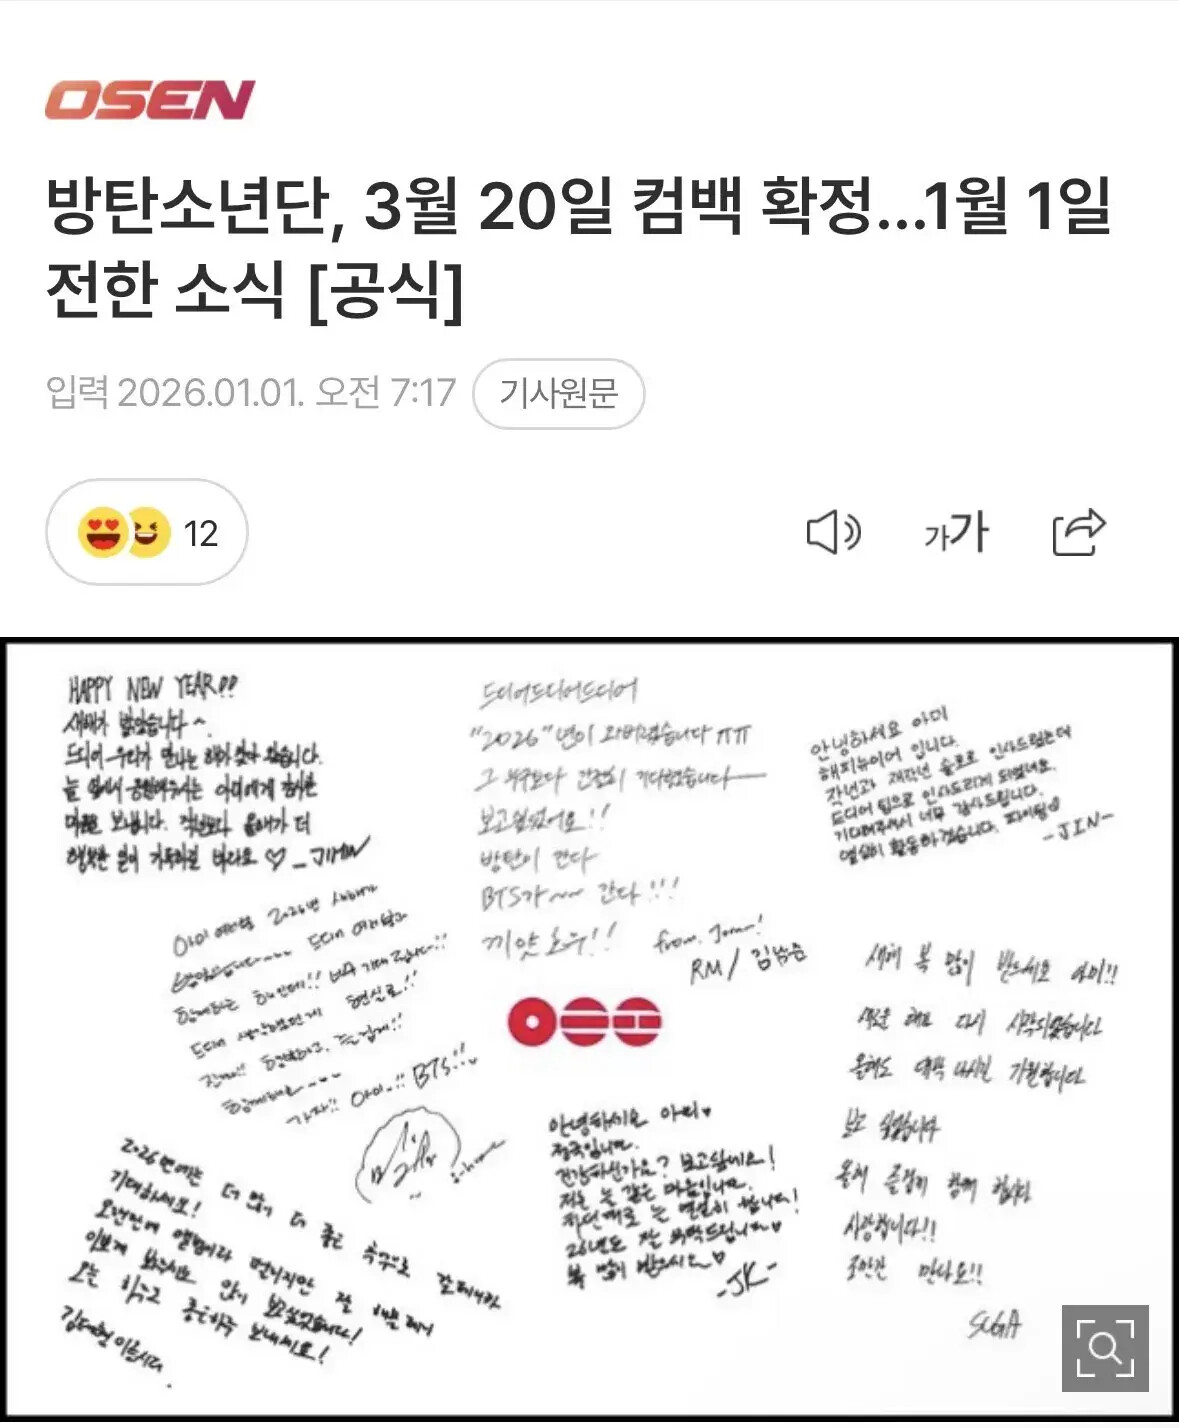 OSEN
방탄소년단, 3월 20일 컴백 확정...1월 1일
전한 소식 [공식]
입력 2026.01.01. 오전 7:17
기사원문
12
가가
HAPPY NEW YEAR!!
새해가 밝았습니다~
드디어 우리가 만나는 해가 왔습니다.
늘 옆에서 응원해주시는 아미에게 감사한
마음을 보냅니다. 작년보다 올해가 더
행복한 일이 가득하길 바라요 ♡ _JIMIN
드디어드디어드디어
"2026"년이 와버렸습니다 ㅠㅠ
그 누구보다 간절히 기다렸습니다
보고싶었어요!!
방탄이 간다
BTS가~~ 간다!!!
끼얏호우!!
from. Joon!
RM / 김남준
안녕하세요 아미
해피뉴이어 입니다.
작년과 재작년 솔로로 인사드렸는데
드디어 팀으로 인사드리게 되었네요.
기다려주셔서 너무 감사드립니다.
열심히 활동하겠습니다. 파이팅
-JIN-
아미 여러분 2026년 새해가
밝았습니다~~~ 드디어 여러분과
함께하는 해인데!! 너무 기대됩니다!!
드디어 생각했던게 현실로!!
행복하고, 즐겁게!!
함께해요~~~
가자!! 아미..!! BTS!!
새해 복 많이 받으세요 아미!!
새로운 해로 다시 시작되었습니다
올해도 대박 나시길 기원합니다
보고 싶었습니다
올해 즐겁게 함께 합시다
사랑합니다!!
조만간 만나요!!
SUGA
안녕하세요 아미♥
정국입니다.
건강하신가요? 보고싶네요!
저는 늘 같은 마음입니다.
저번대로 늘 열심히 합니다!
26년도 잘 부탁드립니다
복 많이 받으세요♡
-JK-
2026년에는 더 많이 더 좋은 추억으로 갈테니까
기대하세요!
오랜만에 앨범이라 떨리지만 잘 해볼테니
이쁘게 봐주시고 많이 보고싶었습니다!
오늘 하루도 좋은하루 보내세요!
김태형이올시다.